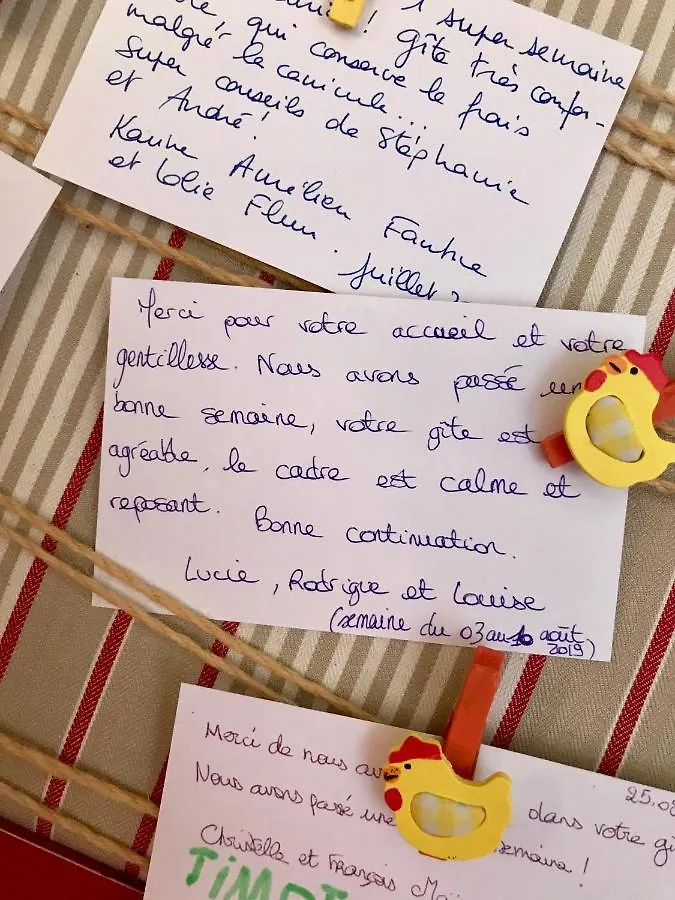 ! 1 super semaine
qui conserve le frais gîte très confor-
malgré la canicule...
Super conseils de Stéphanie
et André!
Karine Amélien Fantine
et Lolie Fleur. Juillet
Merci pour votre accueil et votre
gentillesse. Nous avons passé une
bonne semaine, votre gîte est
agréable, le cadre est calme et
reposant. Bonne continuation.
Lucie, Rodrigue et Louise
(semaine du 03 au 10 août
2019)
25.08
Merci de nous dans votre gî
Nous avons passé une semaine!
Christelle et François